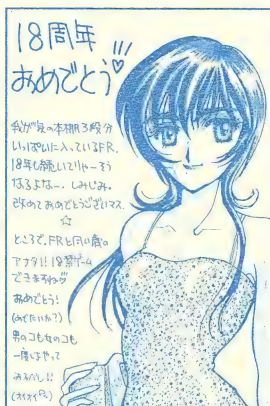 18周年!!!
おめでとう♡
我が家の本棚3段分
いっぱいに入っているFR.
18年も続いてりゃーそう
なるよなー。しみじみ。
改めておめでとうございマス.
☆
ところで、FRと同い歳の
アナタ!! 18禁ゲーム
できますわョ
おめでとう!
(めでたいか?)
男のコも女のコも
一度はやって
みるべし!!
(オイオイ)